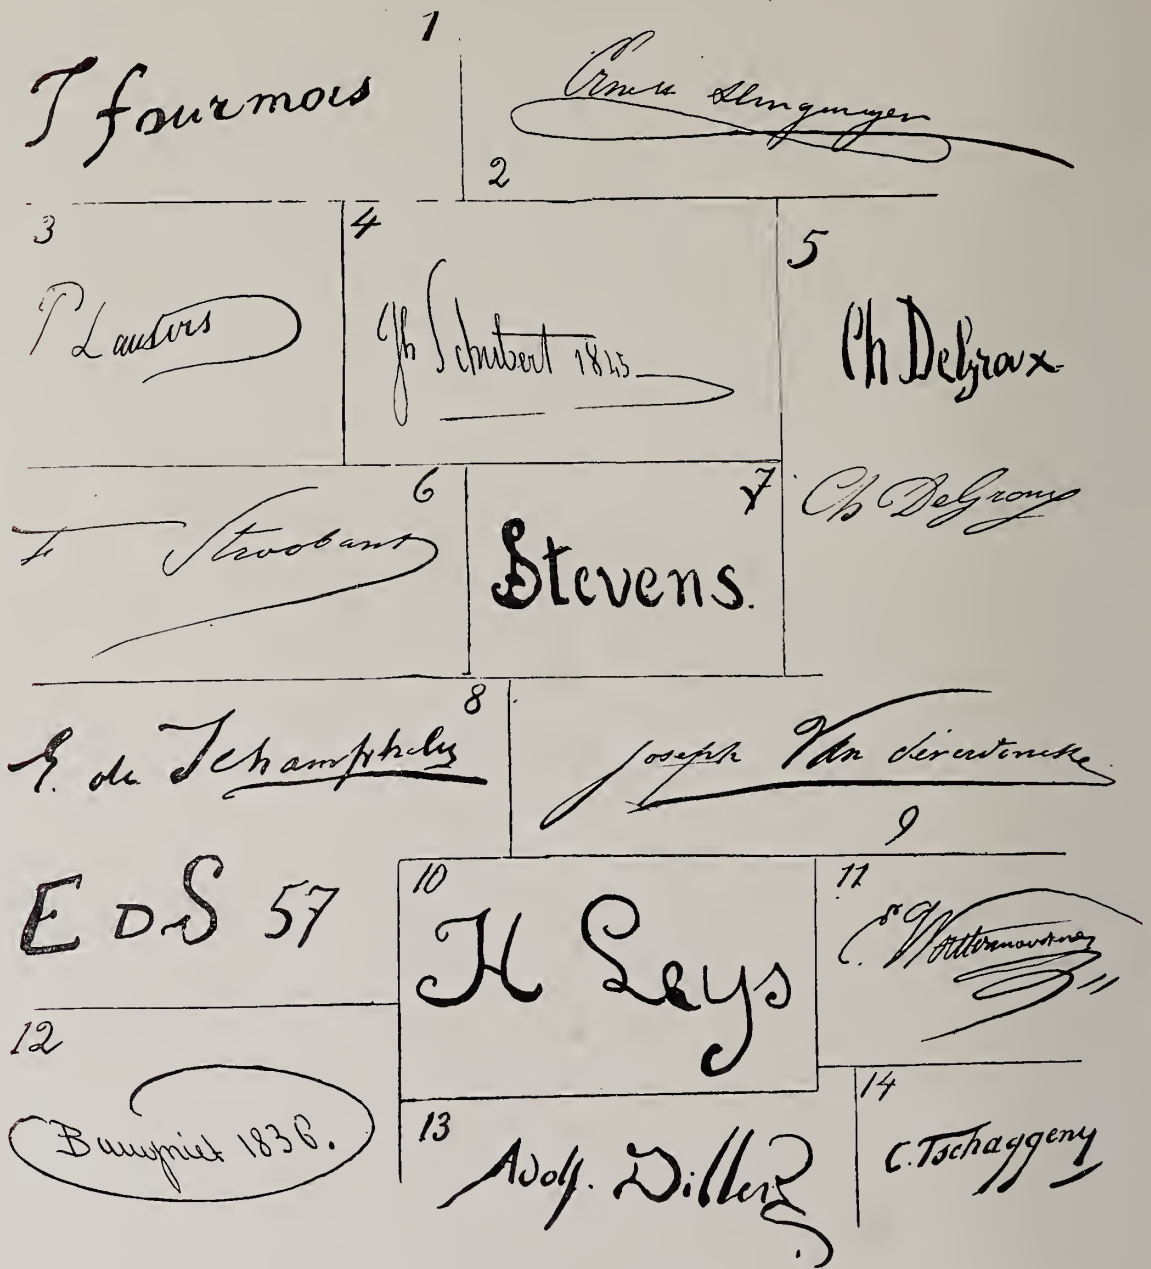 1
T fourmois
2
Ernest Slingeneyer
3
P Lauters
4
Jh Schubert 1845
5
Ch DeGroux
Ch DeGroux
6
F Stroobant
7
Stevens.
8
E. de Schampheleer
Joseph Van Severdonck
9
E D S 57
10
H Leys
11
12
Baugniet 1836.
13
Adolf. Dillens
14
C. Tschaggeny